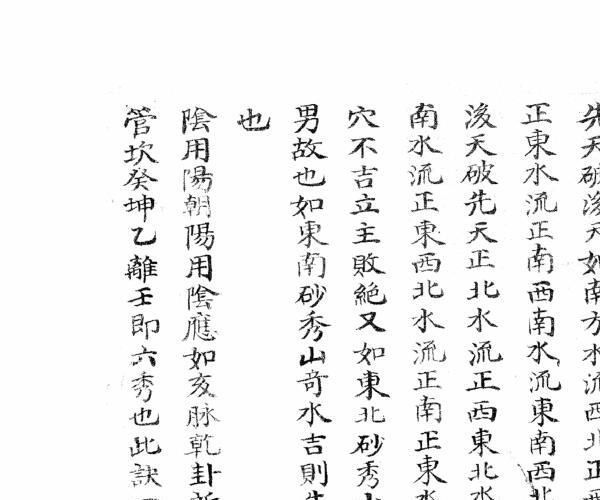 先天破後天如南方水流西北正西
正東水流正南西南水流東南西北
後天破先天正北水流正西東北水
南水流正東西北水流正南正東水
穴不吉立主敗絶又如東北砂秀
男故也如東南砂秀山奇水吉則
也
陰用陽朝陽用陰應如亥脉乾卦
管坎癸坤乙離壬即六秀也此訣